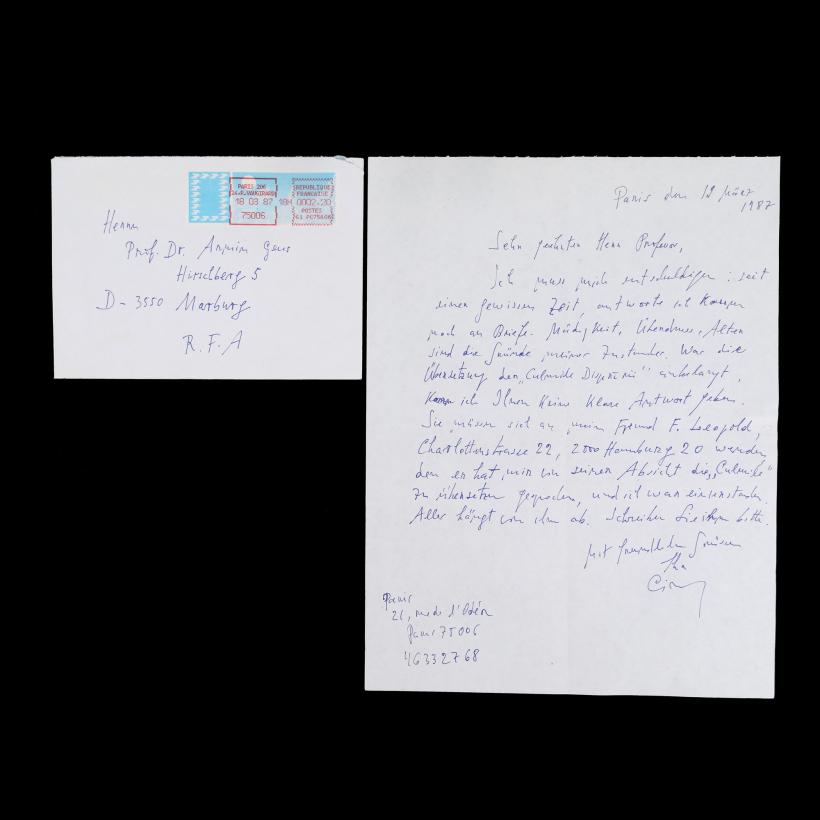 PARIS 206
24.R.VAUGIRARD
18 03 87 18H 0002.20
75006
REPUBLIQUE
FRANCAISE
POSTES
61 PC75606
Herrn
Prof. Dr.
Hirschberg 5
D - 3550 Marburg
R.F.A
Paris den 12 März
1987
Sehr geehrter Herr Professor,
Ich muss mich entschuldigen : seit
einer gewissen Zeit, antworte ich kaum
noch an Briefe. Müdigkeit, Überdruss, Alter
sind die Gründe meines Zustandes. Was die
Übersetzung der „Culmile Disperării" anbelangt,
kann ich Ihnen keine klare Antwort geben.
Sie müssen sich an mein Freund F. Leopold,
Charlottenstrasse 22, 2000 Hamburg 20 wenden
denn er hat mir von seiner Absicht die „Culmile"
zu übersetzen gesprochen, und ich war einverstanden.
Alles hängt von ihm ab. Schreiben Sie ihm bitte.
Mit freundlichen Grüssen
Ihr
Cioran
Paris
21, rue de l'Odéon
Paris 75006
46332768